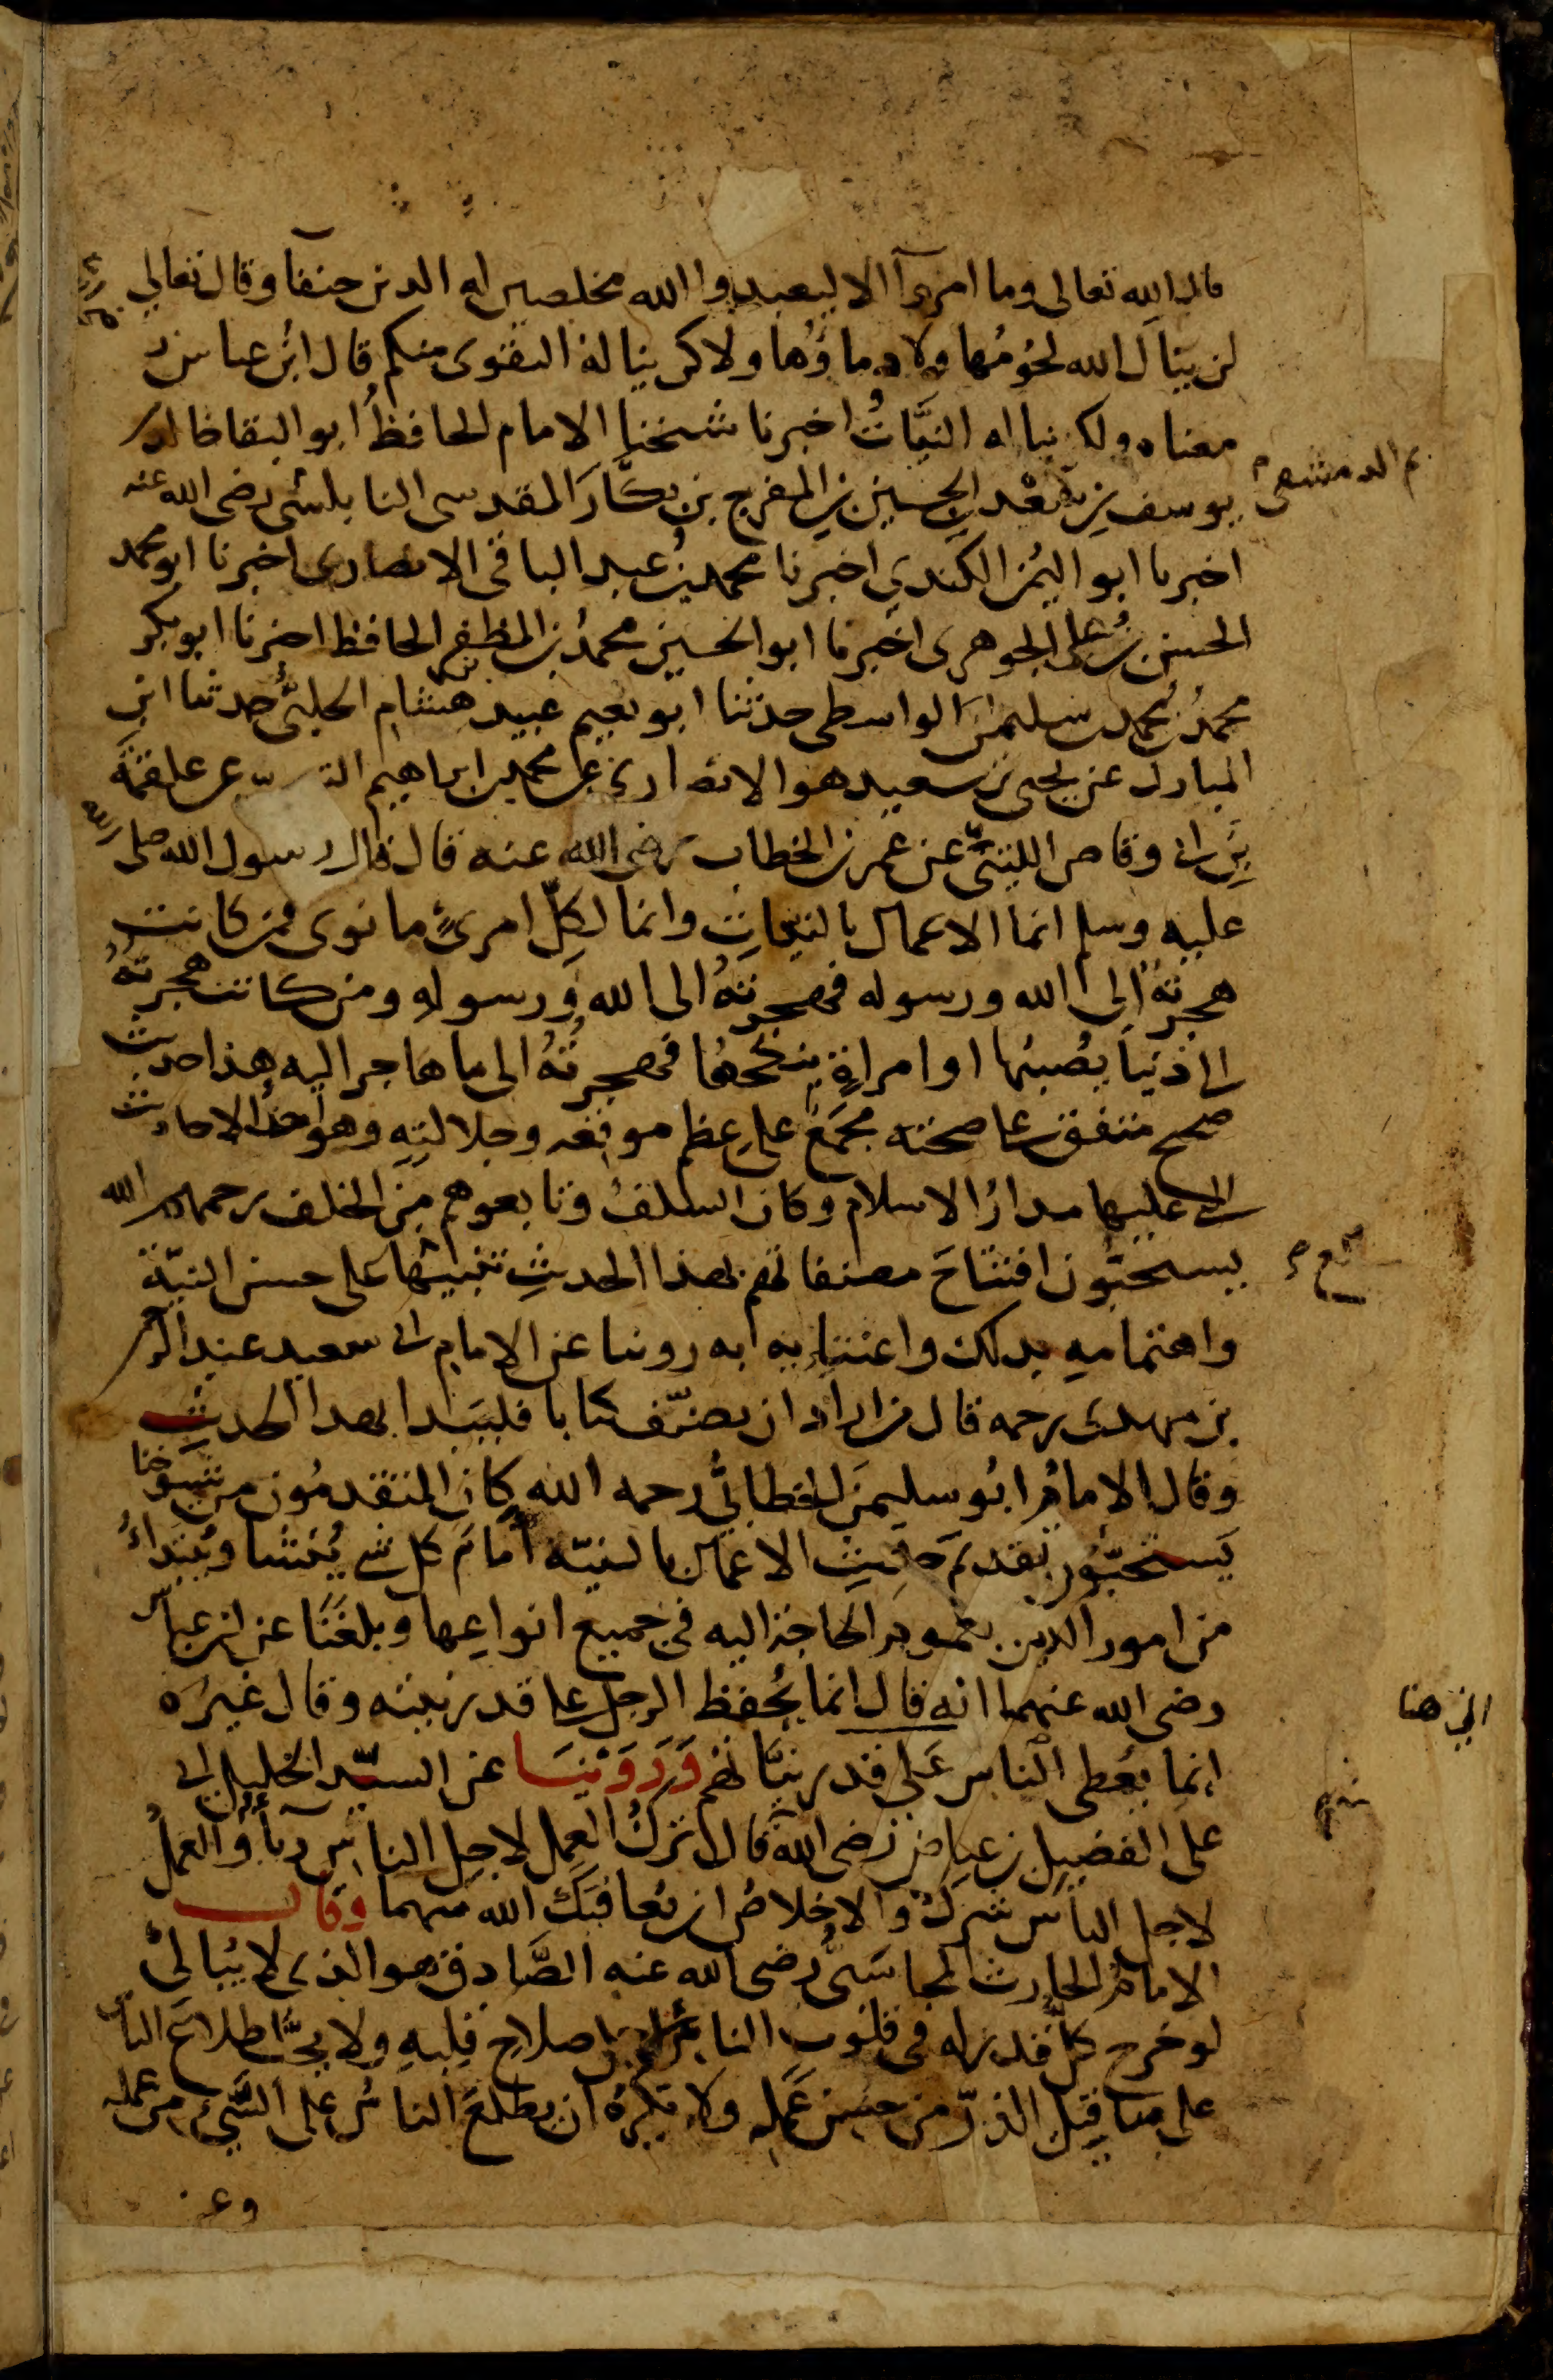 قال الله تعالى وما امروآ الا ليعبدوا الله مخلصين له الدين حنفآ وقال تعالى
لن ينال الله لحومُها ولا دماؤها ولاكن يناله التقوى منكم قال ابن عباس رضي
معناه ولكن يناله النيَّاتُ اخبرنا شيخنا الامام الحافظُ ابو البقا خالد
يوسف بن سعْد الحسين بن المفرج بن بكَّار المقدسى النابلسُى رضى الله عنه
ثم الدمشقى
اخبرنا ابو اليُمن الكندي اخبرنا محمد بن عبد الباقى الانصارى اخبرنا ابو محمد
الحسن بنُ على الجوهرى اخبرنا ابو الحسين محمدُ بن المظفر الحافظ اخبرنا ابو بكر
محمدُ بن محمد بن سليمن الواسطى حدثنا ابو نعيم عبيد بن هشام الحلبىُّ حدثنا ابن
المبارك عن يحيى بن سعيد هو الانصارى عن محمد بن ابراهيم عن علقمَة
بن ابى وقاص الليثىّ عن عمر بن الخطاب رضى الله عنه قال قال رسول الله صلى الله
عليه وسلم انما الاعمال بالنيات وانما لكلّ امرئ ما نوى فمن كانت
هجرتهُ الى الله ورسوله فهجرتهُ الى الله ورسوله ومن كانت هجرتهُ
الى دنيا يُصيبُها او امراةٍ ينكحُها فهجرتُهُ الى ما هاجر اليه هذا حديث
صحيح متفق على صحته مجمَعٌ على عِظم موقعه وجلالتِهِ وهو احدُ الاحاديث
التى عليها مدارُ الاسلام وكان السلفُ وتابعوهم مِنَ الخلف رحمهم الله
يستحبُّون افتتاحَ مصنفاتهم بهذا الحديثِ تنبيهًا على حسن النيَّة
واهتمامهِ بذلك واعتنايِه به روينا عن الامام ابى سعيد عبد الرحمن
بن مهدى رحمه قال من اراد ان يصنّف كتابا فليبدا بهذا الحديث
وقال الامامُ ابُو سليمن الخطابىُّ رحمه الله كان المتقدمُون من شيوخنا
يَستحبّون تقديم حديث الاعمال بالنيّه اَمامَ كل شى يُنشا ويُبتداءُ
من امور الدين لعموم الحاجة اليه فى جميع انواعِها وبلغَنَا عن ابن عباس
رضى الله عنهما انه قال انما يُحفظ الرجل على قدر نيته وقال غيرُه
الى هنا
انما يُعطى الناس عَلى قدر نيَّاتهم وَرَوَيْنَا عن السيّد الجليل ابى
على الفضيل بن عياض رضى الله قال تركُ العمل لاجل الناس رياءٌ والعملُ
لاجل الناس شركٌ والاخلاصُ ان يُعافيَك الله منهما وقال
الامامُ الحارث المحاسَبىُّ رضى الله عنه الصَّادق هو الذى لا يُبالىْ
لو خرج كلُّ قدر له فى قلوب الناس لاصلاح قلبهِ ولا يحبُّ اطلاعَ الناس
على مثاقيل الذرّ من حسن عَملِه ولا يكرهُ ان يطلعَ الناسُ على السَّيئ من عمله
وعن